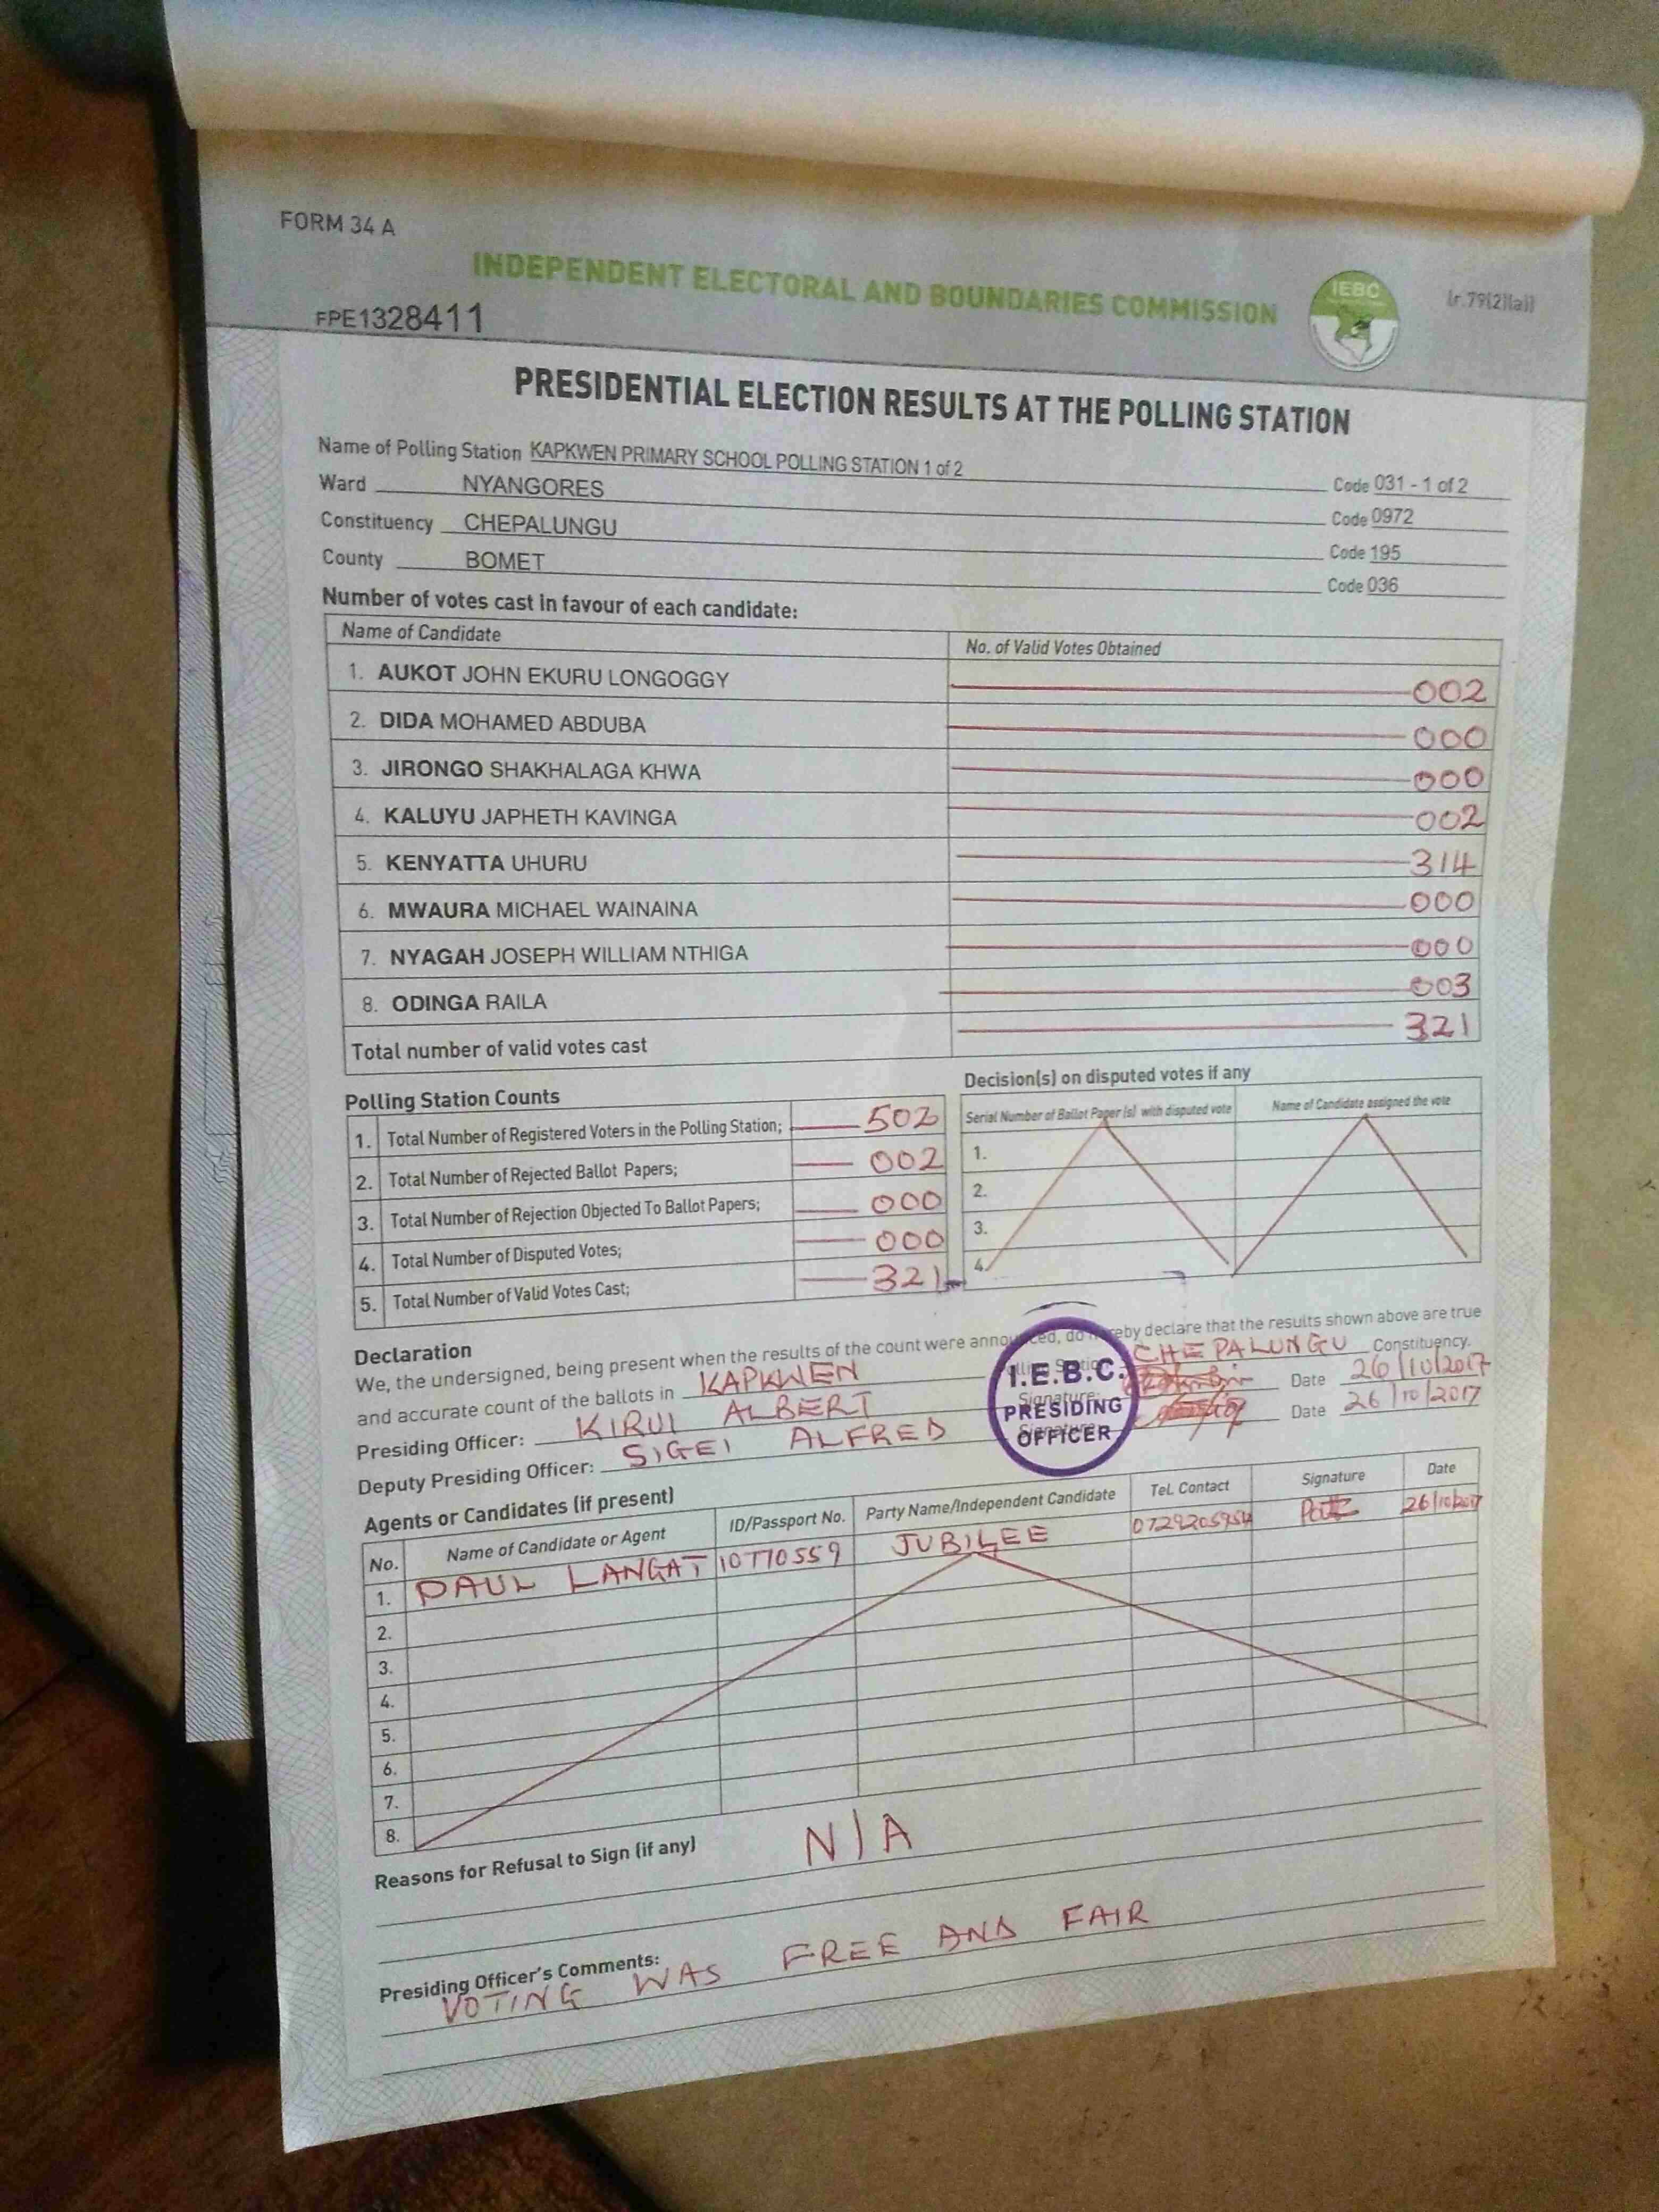 FORM 34 A
INDEPENDENT ELECTORAL AND BOUNDARIES COMMISSION
IEBC
(r.79(2)(a))
FPE1328411
PRESIDENTIAL ELECTION RESULTS AT THE POLLING STATION
Name of Polling Station KAPKWEN PRIMARY SCHOOL POLLING STATION 1 of 2 Code 031 - 1 of 2
Ward NYANGORES Code 0972
Constituency CHEPALUNGU Code 195
County BOMET Code 036
Number of votes cast in favour of each candidate:
Name of Candidate No. of Valid Votes Obtained
1. AUKOT JOHN EKURU LONGOGGY 002
2. DIDA MOHAMED ABDUBA 000
3. JIRONGO SHAKHALAGA KHWA 000
4. KALUYU JAPHETH KAVINGA 002
5. KENYATTA UHURU 314
6. MWAURA MICHAEL WAINAINA 000
7. NYAGAH JOSEPH WILLIAM NTHIGA 000
8. ODINGA RAILA 003
Total number of valid votes cast 321
Polling Station Counts
1. Total Number of Registered Voters in the Polling Station; 502
2. Total Number of Rejected Ballot Papers; 002
3. Total Number of Rejection Objected To Ballot Papers; 000
4. Total Number of Disputed Votes; 000
5. Total Number of Valid Votes Cast; 321
Decision(s) on disputed votes if any
Serial Number of Ballot Paper (s) with disputed vote Name of Candidate assigned the vote
1.
2.
3.
4.
Declaration
We, the undersigned, being present when the results of the count were announced, do hereby declare that the results shown above are true
and accurate count of the ballots in KAPKWEN Polling Station CHEPALUNGU Constituency.
Presiding Officer: KIRUI ALBERT Signature: Date 26/10/2017
Deputy Presiding Officer: SIGEI ALFRED Signature: Date 26/10/2017
I.E.B.C.
PRESIDING
OFFICER
Agents or Candidates (if present)
No. Name of Candidate or Agent ID/Passport No. Party Name/Independent Candidate Tel. Contact Signature Date
1. PAUL LANGAT JUBILEE 26/10/2017
2.
3.
4.
5.
6.
7.
8.
Reasons for Refusal to Sign (if any) N/A
Presiding Officer's Comments:
VOTING WAS FREE AND FAIR